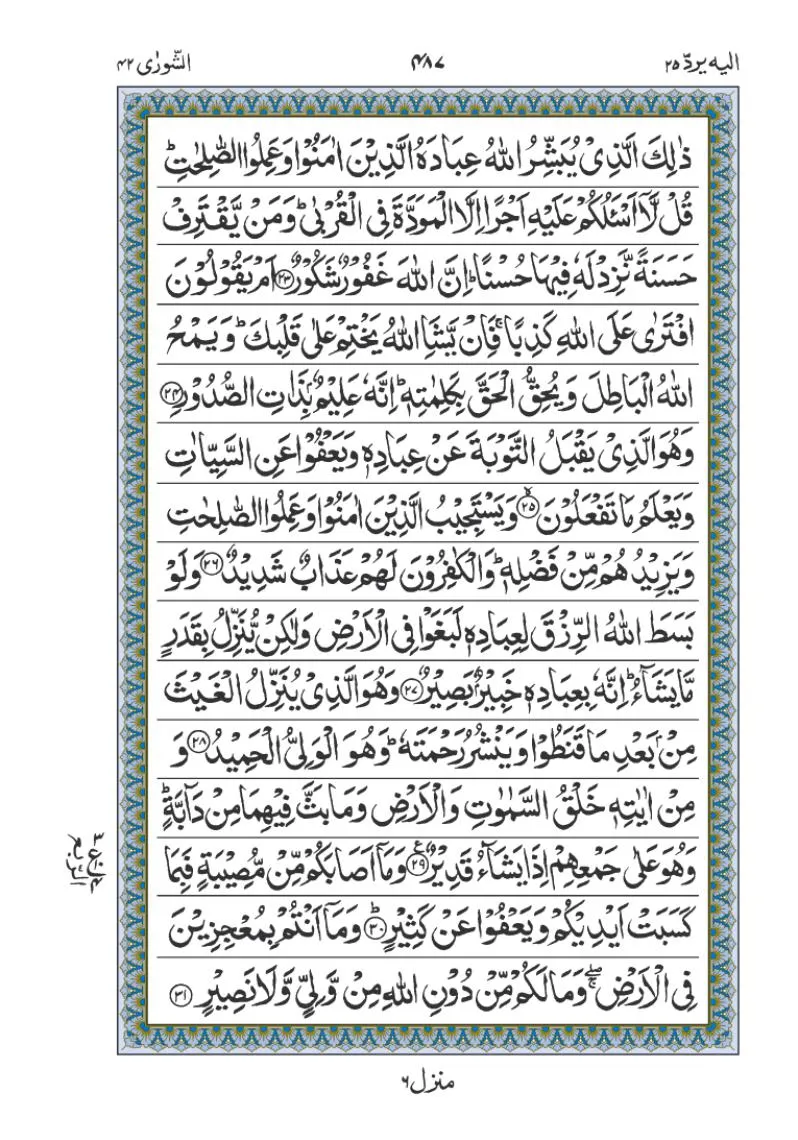 اليه يردّ ٢٥
٤٨٧
الشّورٰى ٤٢
ذٰلِكَ الَّذِىْ يُبَشِّرُ اللّٰهُ عِبَادَهُ الَّذِيْنَ اٰمَنُوْا وَعَمِلُوا الصّٰلِحٰتِ ؕ
قُلْ لَّاۤ اَسْـَٔلُكُمْ عَلَيْهِ اَجْرًا اِلَّا الْمَوَدَّةَ فِى الْقُرْبٰى ؕ وَمَنْ يَّقْتَرِفْ
حَسَنَةً نَّزِدْ لَهٗ فِيْهَا حُسْنًا ؕ اِنَّ اللّٰهَ غَفُوْرٌ شَكُوْرٌ ﴿٢٣﴾ اَمْ يَقُوْلُوْنَ
افْتَرٰى عَلَى اللّٰهِ كَذِبًا ۚ فَاِنْ يَّشَاِ اللّٰهُ يَخْتِمْ عَلٰى قَلْبِكَ ؕ وَيَمْحُ
اللّٰهُ الْبَاطِلَ وَيُحِقُّ الْحَقَّ بِكَلِمٰتِهٖ ؕ اِنَّهٗ عَلِيْمٌۢ بِذَاتِ الصُّدُوْرِ ﴿٢٤﴾
وَهُوَ الَّذِىْ يَقْبَلُ التَّوْبَةَ عَنْ عِبَادِهٖ وَيَعْفُوْا عَنِ السَّيِّاٰتِ
وَيَعْلَمُ مَا تَفْعَلُوْنَ ﴿٢٥﴾ۙ وَيَسْتَجِيْبُ الَّذِيْنَ اٰمَنُوْا وَعَمِلُوا الصّٰلِحٰتِ
وَيَزِيْدُهُمْ مِّنْ فَضْلِهٖ ؕ وَالْكٰفِرُوْنَ لَهُمْ عَذَابٌ شَدِيْدٌ ﴿٢٦﴾ وَلَوْ
بَسَطَ اللّٰهُ الرِّزْقَ لِعِبَادِهٖ لَبَغَوْا فِى الْاَرْضِ وَلٰكِنْ يُّنَزِّلُ بِقَدَرٍ
مَّا يَشَآءُ ؕ اِنَّهٗ بِعِبَادِهٖ خَبِيْرٌۢ بَصِيْرٌ ﴿٢٧﴾ وَهُوَ الَّذِىْ يُنَزِّلُ الْغَيْثَ
مِنْۢ بَعْدِ مَا قَنَطُوْا وَيَنْشُرُ رَحْمَتَهٗ ؕ وَهُوَ الْوَلِىُّ الْحَمِيْدُ ﴿٢٨﴾ وَ
مِنْ اٰيٰتِهٖ خَلْقُ السَّمٰوٰتِ وَالْاَرْضِ وَمَا بَثَّ فِيْهِمَا مِنْ دَآبَّةٍ ؕ
وَهُوَ عَلٰى جَمْعِهِمْ اِذَا يَشَآءُ قَدِيْرٌ ﴿٢٩﴾ۧ وَمَاۤ اَصَابَكُمْ مِّنْ مُّصِيْبَةٍ فَبِمَا
كَسَبَتْ اَيْدِيْكُمْ وَيَعْفُوْا عَنْ كَثِيْرٍ ﴿٣٠﴾ؕ وَمَاۤ اَنْتُمْ بِمُعْجِزِيْنَ
فِى الْاَرْضِ ۖۚ وَمَا لَكُمْ مِّنْ دُوْنِ اللّٰهِ مِنْ وَّلِىٍّ وَّلَا نَصِيْرٍ ﴿٣١﴾
منزل ٦